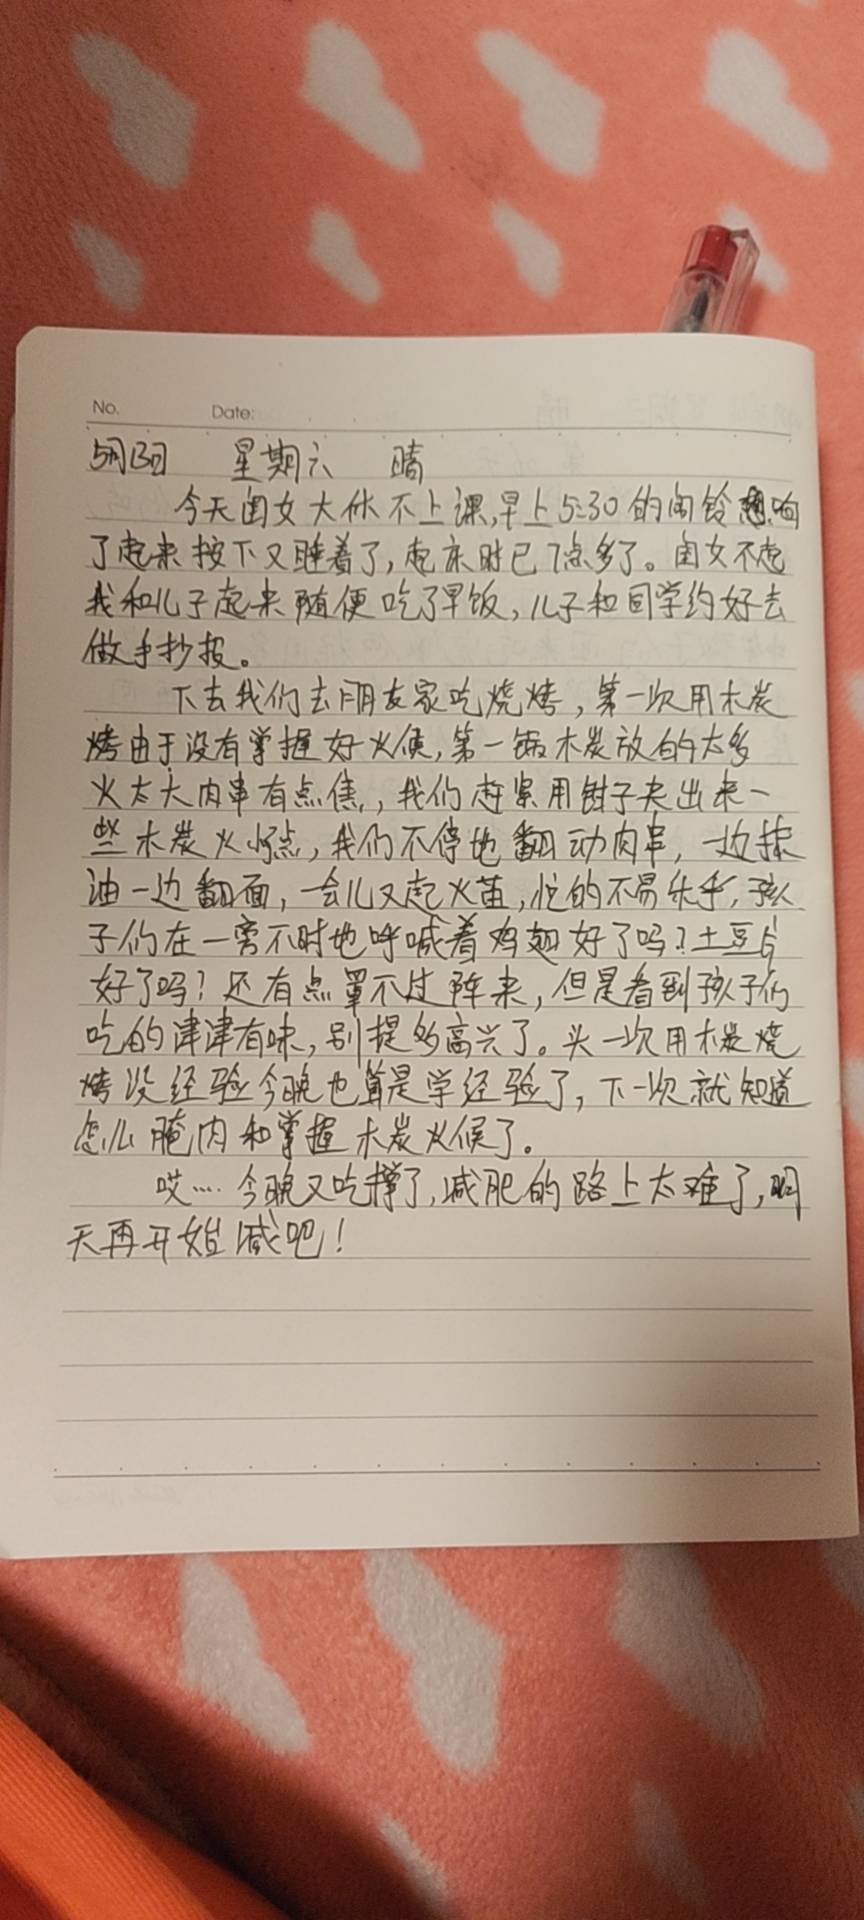 No. Date:
5月13日 星期六 晴
今天闺女大休不上课,早上5:30的闹铃响
了起来按下又睡着了,起床时已7点多了。闺女不起
我和儿子起来随便吃了早饭,儿子和同学约好去
做手抄报。
下去我们去朋友家吃烧烤,第一次用木炭
烤由于没有掌握好火候,第一锅木炭放的太多
火太大肉串有点焦,我们赶紧用钳子夹出来一
些木炭火小点,我们不停地翻动肉串,一边抹
油一边翻面,一会儿又起火苗,忙的不易乐乎,孩
子们在一旁不时地呼喊着鸡翅好了吗?土豆片
好了吗?还有点罩不过阵来,但是看到孩子们
吃的津津有味,别提多高兴了。头一次用木炭烧
烤没经验今晚也算是学经验了,下一次就知道
怎么腌肉和掌握木炭火候了。
哎…今晚又吃撑了,减肥的路上太难了,明
天再开始减吧!